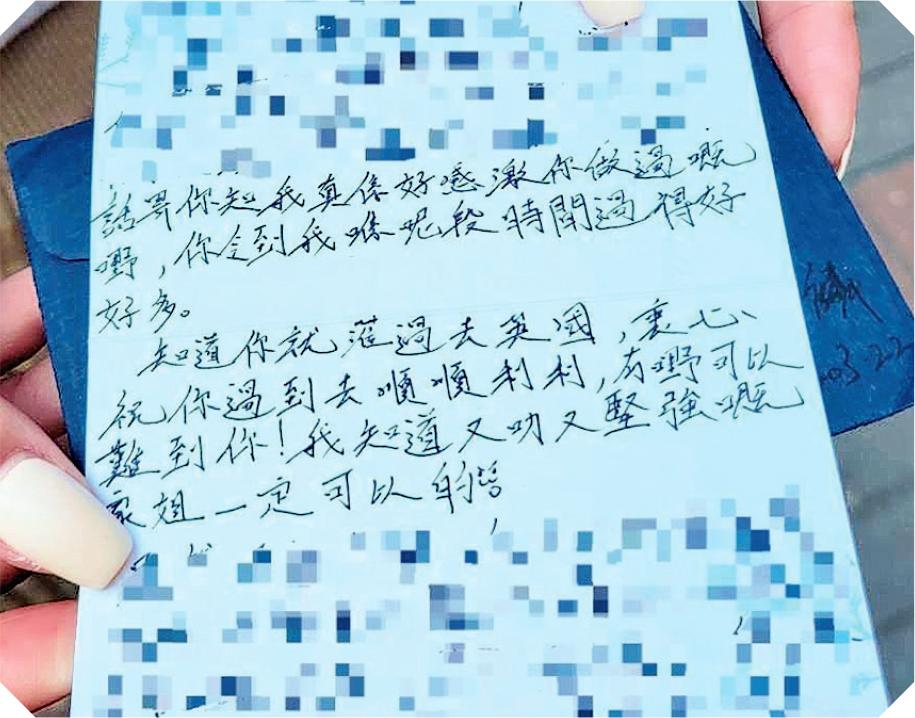 話畀你知我真係好感激你做過嘅
嘢，你令到我喺呢段時間過得好
好多。
知道你就過去英國，衷心
祝你過到去順順利利，冇嘢可以
難到你！我知道又叻又堅強嘅
家姐一定可以
03.22